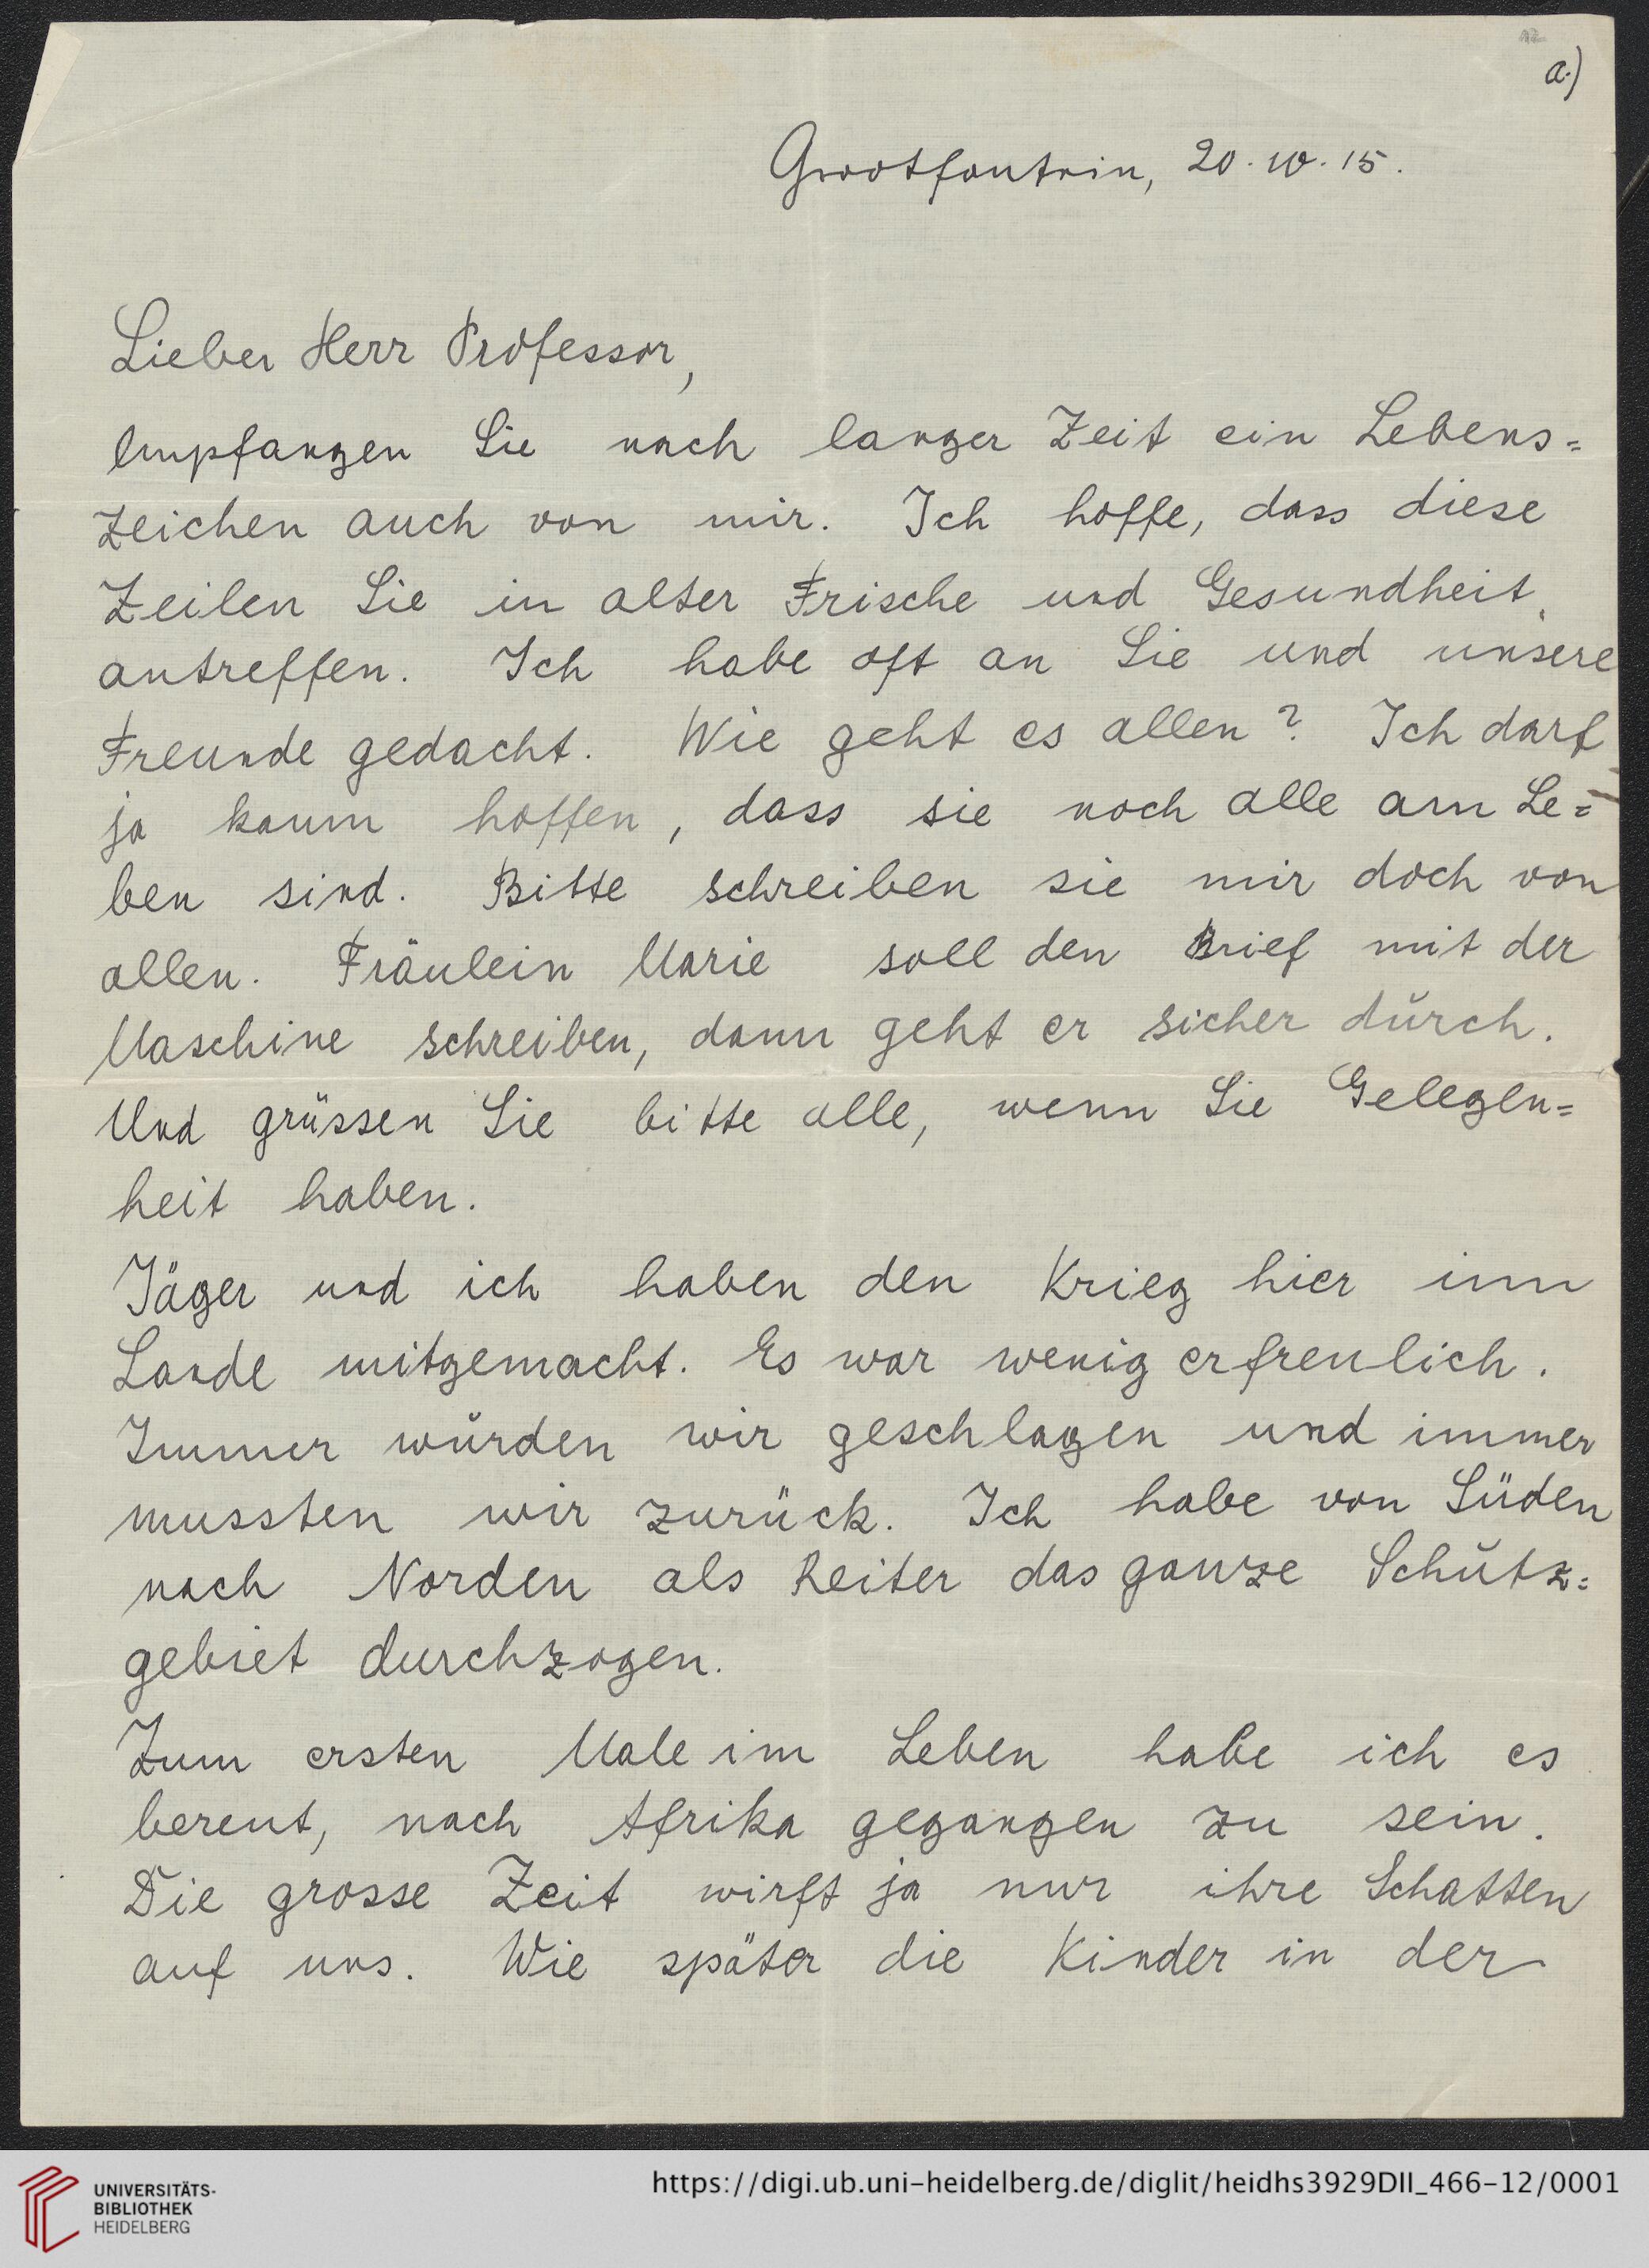 a.)
Grootfontein, 20.10.15.
Lieber Herr Professor,
Empfangen Sie nach langer Zeit ein Lebens=
zeichen auch von mir. Ich hoffe, dass diese
Zeilen Sie in alter Frische und Gesundheit
antreffen. Ich habe oft an Sie und unsere
Freunde gedacht. Wie geht es allen? Ich darf
ja kaum hoffen, dass sie noch alle am Le=
ben sind. Bitte schreiben sie mir doch von
allen. Fräulein Marie soll den Brief mit der
Maschine schreiben, dann geht er sicher durch.
Und grüssen Sie bitte alle, wenn Sie Gelegen=
heit haben.
Jäger und ich haben den Krieg hier im
Lande mitgemacht. Es war wenig erfreulich.
Immer wurden wir geschlagen und immer
mussten wir zurück. Ich habe von Süden
nach Norden als Reiter das ganze Schutz=
gebiet durchzogen.
Zum ersten Male im Leben habe ich es
bereut, nach Afrika gegangen zu sein.
Die grosse Zeit wirft ja nur ihre Schatten
auf uns. Wie später die Kinder in der
UNIVERSITÄTS-
BIBLIOTHEK
HEIDELBERG
https://digi.ub.uni-heidelberg.de/diglit/heidhs3929DII_466-12/0001